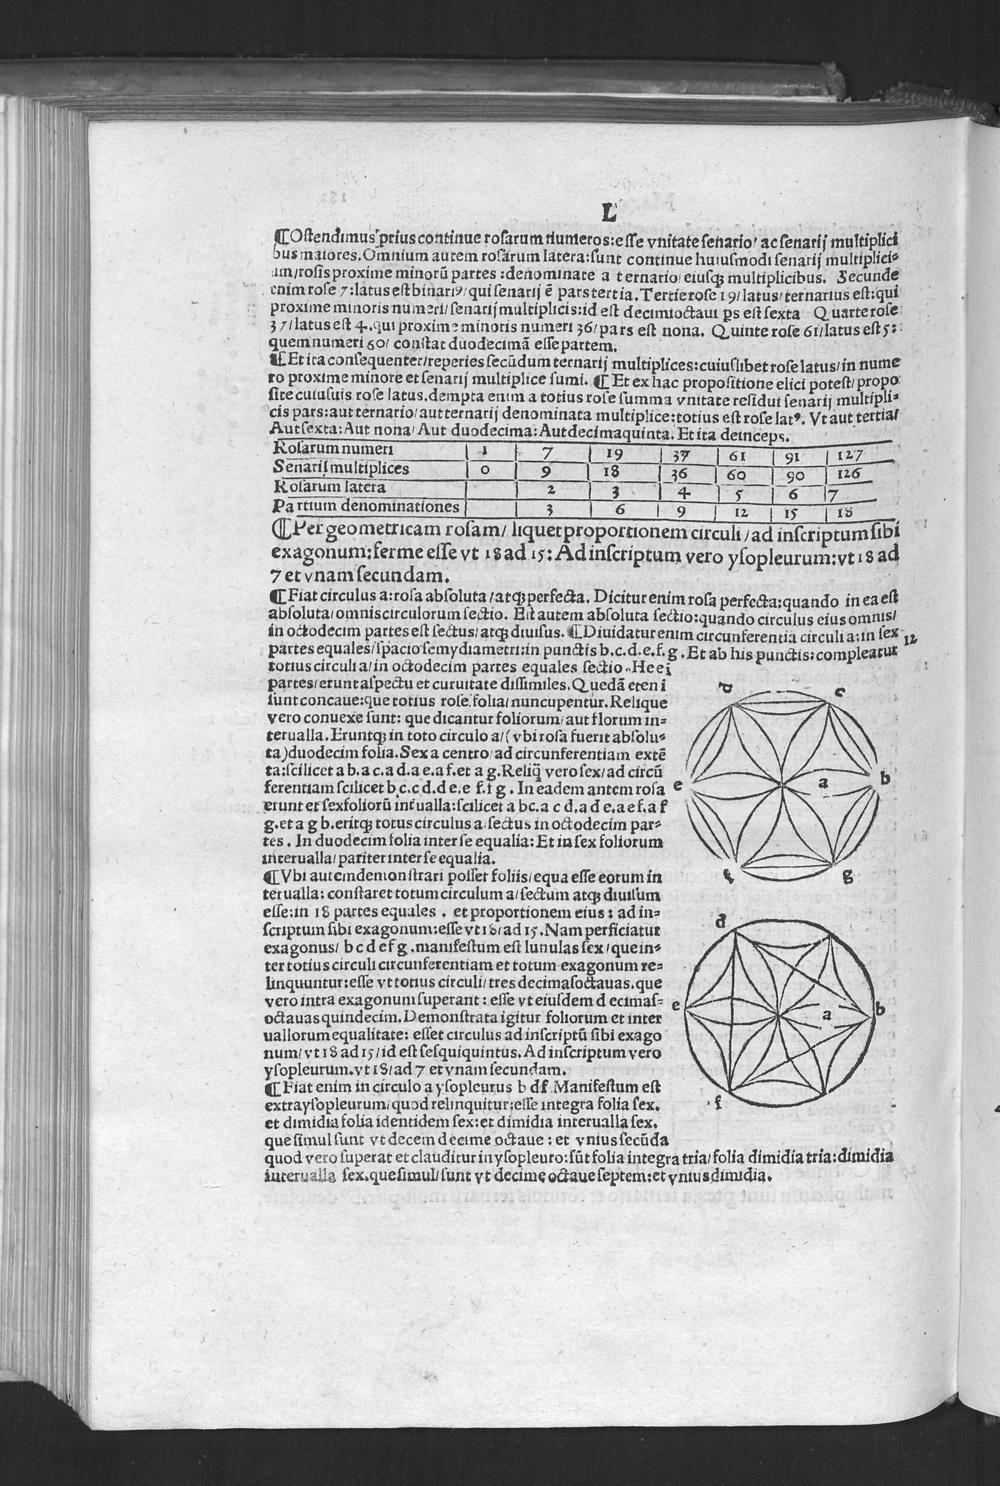 L
¶Ostendimus prius continue rosarum numeros:esse vnitate senario/ ac senarij multiplici
bus maiores.Omnium autem rosarum latera:sunt continue huiusmodi senarij multiplici⸗
um/rosis proxime minorū partes :denominate a ternario/eiusqʒ multiplicibus. Secunde
enim rose 7:latus est binariꝰ/qui senarij ē pars tertia.Tertie rose 19/latus/ternarius est:qui
proxime minoris numeri/senarij multiplicis:id est decimioctaui ps est sexta Quarte rose
37/latus est 4.qui proxime minoris numeri 36/pars est nona. Quinte rose 61/latus est 5:
quem numeri 60/ constat duodecimā esse partem.
¶Et ita consequenter/reperies secūdum ternarij multiplices:cuiuslibet rose latus/in nume
ro proxime minore et senarij multiplice sumi. ¶Et ex hac propositione elici potest/propo
site cuiusuis rose latus.dempta enim a totius rose summa vnitate residui senarij multipli⸗
cis pars:aut ternario/aut ternarij denominata multiplice:totius est rose latꝰ. Vt aut tertia/
Aut sexta:Aut nona/Aut duodecima:Aut decimaquinta.Et ita deinceps.
Rosarum numeri | 1 | 7 | 19 | 37 | 61 | 91 | 127
Senarij multiplices | 0 | 9 | 18 | 36 | 60 | 90 | 126
Rosarum latera | | 2 | 3 | 4 | 5 | 6 | 7
Partium denominationes | | 3 | 6 | 9 | 12 | 15 | 18
¶Per geometricam rosam/ liquet proportionem circuli/ad inscriptum sibi
exagonum:ferme esse vt 18 ad 15:Ad inscriptum vero ysopleurum:vt 18 ad
7 et vnam secundam.
¶Fiat circulus a:rosa absoluta/atqʒ perfecta. Dicitur enim rosa perfecta:quando in ea est
absoluta/omnis circulorum sectio. Est autem absoluta sectio:quando circulus eius omnis/
in octodecim partes est sectus/atqʒ diuisus. ¶Diuidatur enim circunferentia circuli a:in sex
12
partes equales/spacio semydiametri:in punctis b.c.d.e.f.g.Et ab his punctis:compleatur
totius circuli a/in octodecim partes equales sectio.Hee i
partes/erunt aspectu et curuitate dissimiles.Quedā eteni
sunt concaue:que totius rose folia/nuncupentur.Relique
vero conuexe sunt: que dicantur foliorum/aut florum in⸗
terualla.Eruntqʒ in toto circulo a/(vbi rosa fuerit absolu⸗
ta)duodecim folia.Sex a centro/ad circunferentiam extē
ta:scilicet a b.a c.a d.a e.a f.et a g.Reliq̄ vero sex/ad circū
ferentiam scilicet b c.c d.d e.e f.f g . In eadem autem rosa
erunt et sex foliorū int̄ualla:scilicet a bc.a c d.a d e.a e f.a f
g.et a g b.eritqʒ totus circulus a sectus in octodecim par⸗
tes . In duodecim folia inter se equalia:Et in sex foliorum
interualla/pariter inter se equalia.
¶Vbi autem demonstrari posset foliis/equa esse eorum in
terualla: constaret totum circulum a/sectum atqʒ diuisum
esse:in 18 partes equales . et proportionem eius: ad in⸗
scriptum sibi exagonum:esse vt 18/ad 15.Nam perficiatur
exagonus/ b c d e f g .manifestum est lunulas sex/que in⸗
ter totius circuli circunferentiam et totum exagonum re⸗
linquuntur:esse vt totius circuli/tres decimasoctauas.que
vero intra exagonum superant: esse vt eiusdem decimas⸗
octauas quindecim.Demonstrata igitur foliorum et inter
uallorum equalitate: esset circulus ad inscriptū sibi exago
num/vt 18 ad 15/id est sesquiquintus. Ad inscriptum vero
ysopleurum.vt 18/ad 7 et vnam secundam.
¶Fiat enim in circulo a ysopleurus b d f Manifestum est
extra ysopleurum/quod relinquitur:esse integra folia sex.
et dimidia folia identidem sex:et dimidia interualla sex.
que simul sunt vt decem decime octaue: et vnius secūda
quod vero superat et clauditur in ysopleuro:sūt folia integra tria/folia dimidia tria:dimidia
interualla sex.que simul/sunt vt decime octaue septem:et vnius dimidia.
d
c
e
a
b
f
g
d
e
a
b
f